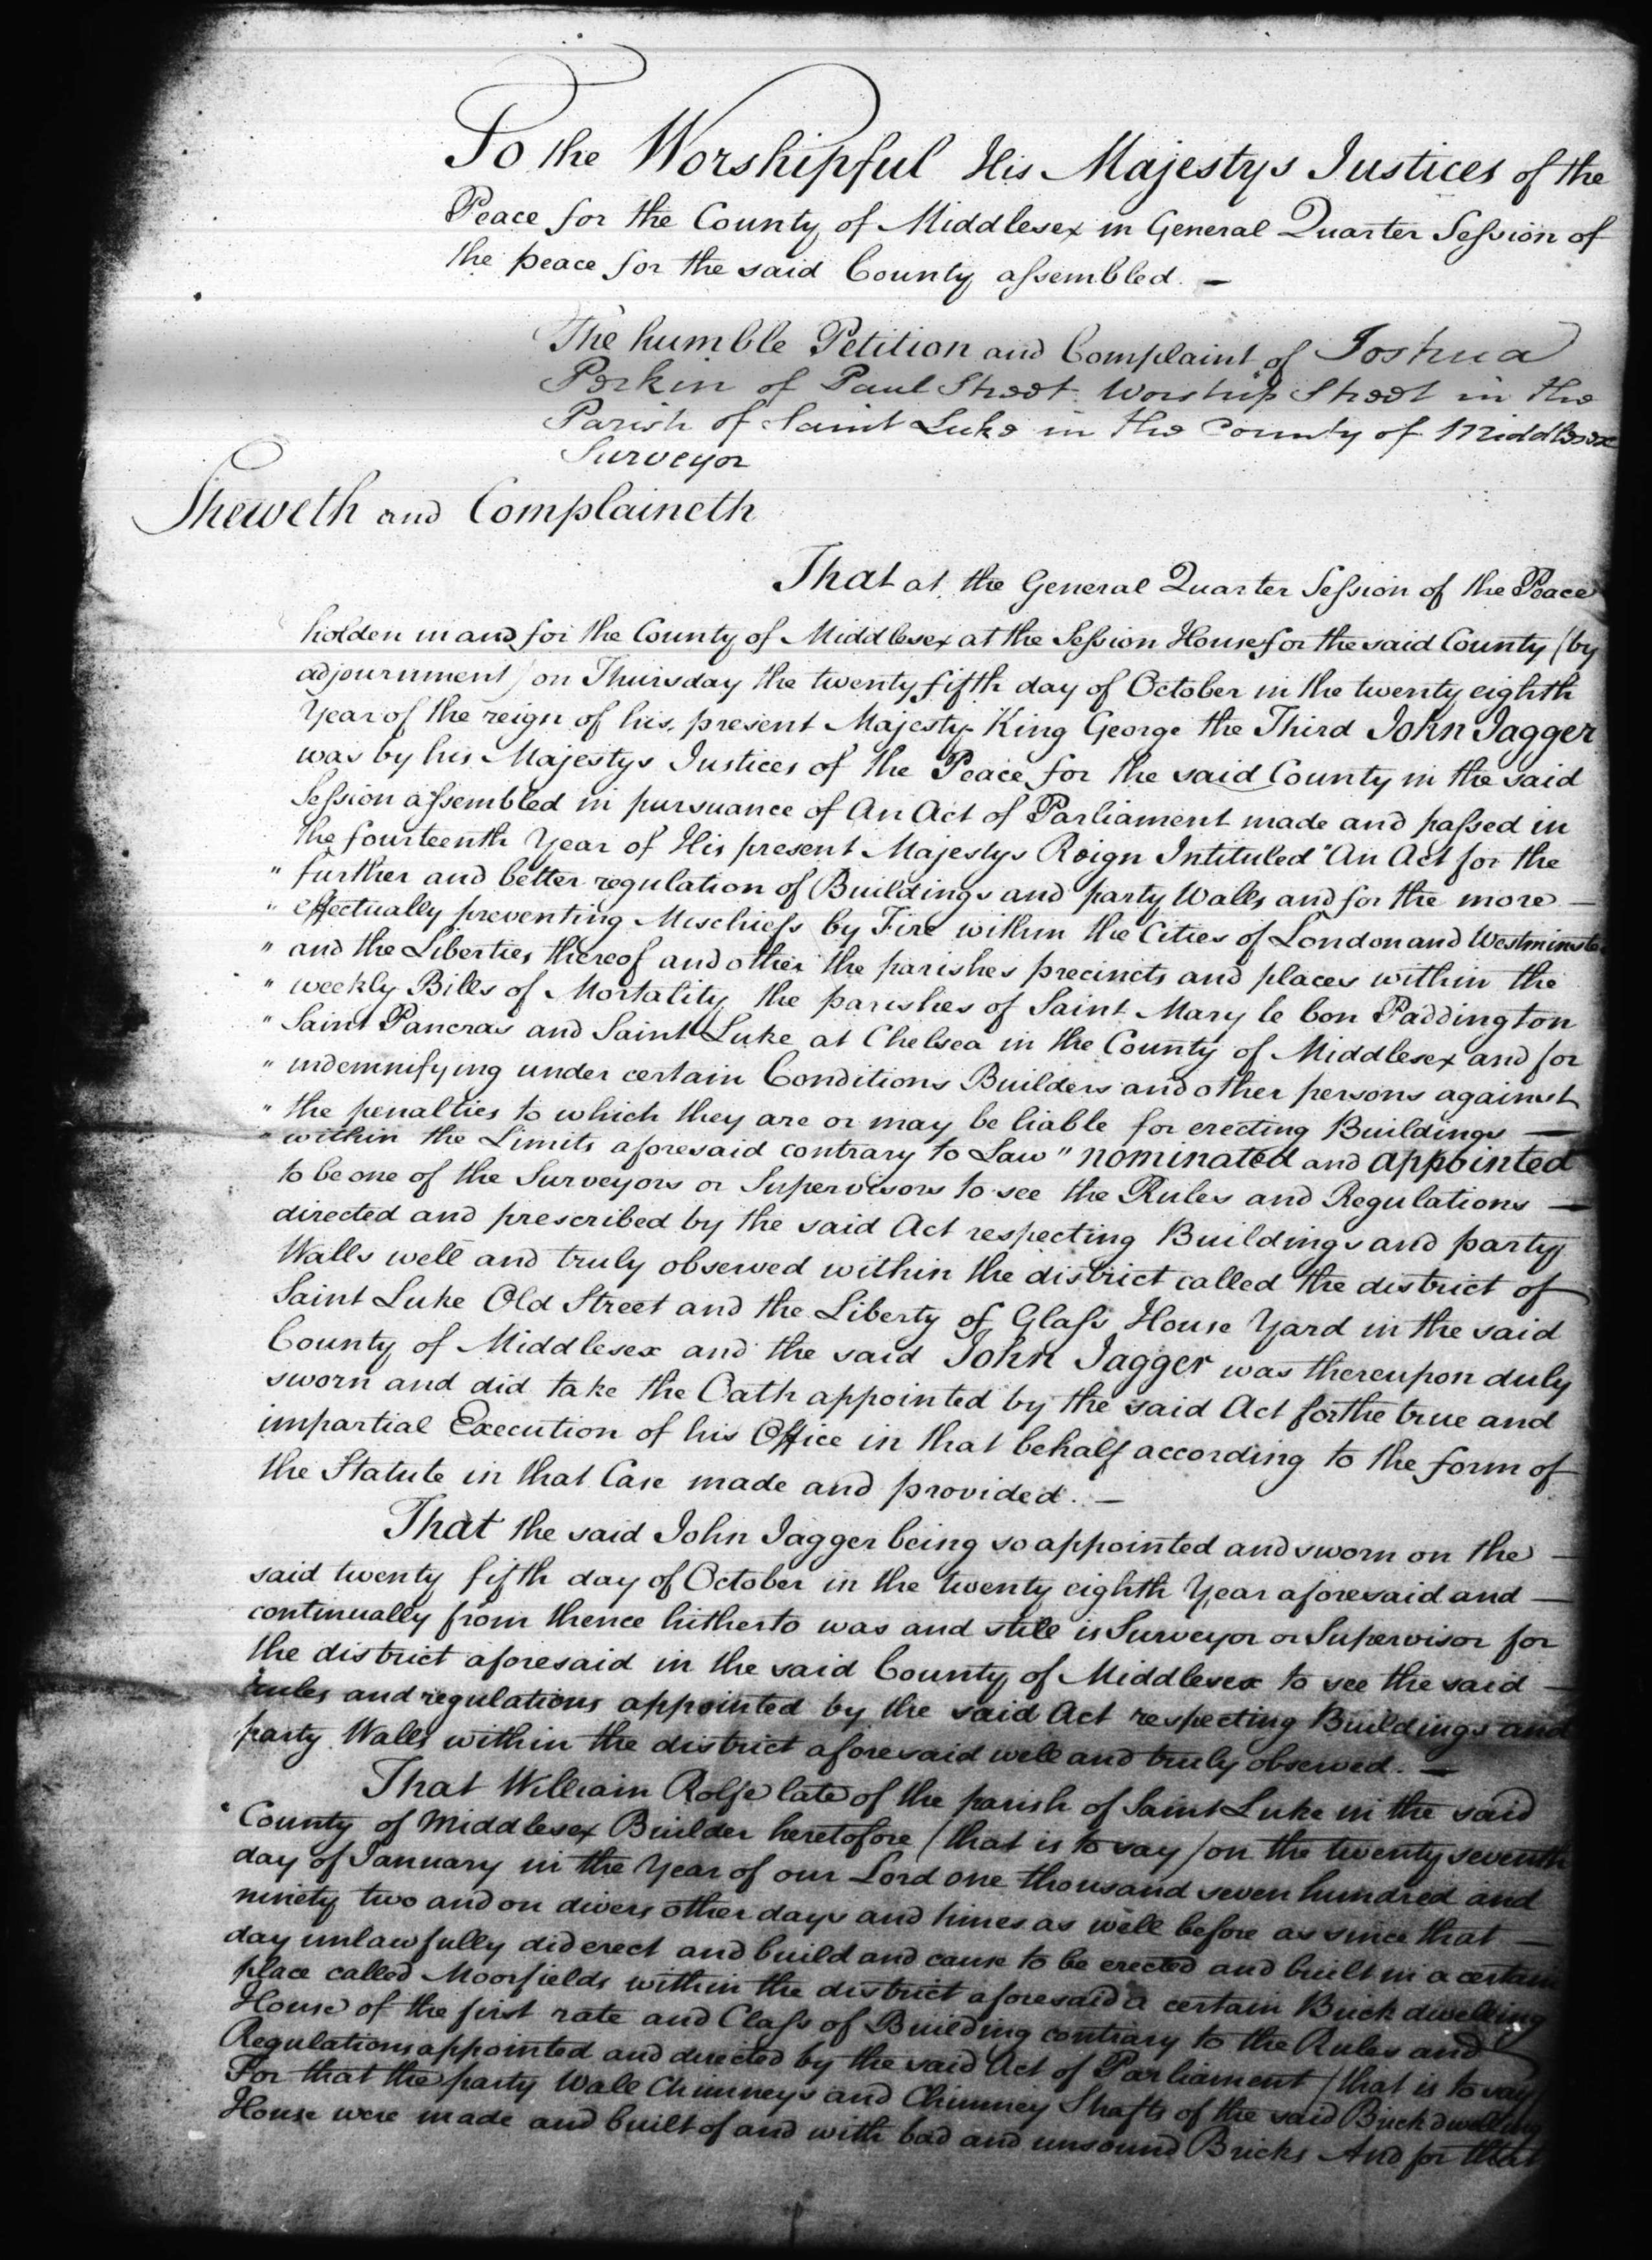 To the Worshipful His Majestys Justices of the
Peace for the County of Middlesex in General Quarter Session of
the peace for the said County assembled. —
The humble Petition and Complaint of Joshua
Perkin of Paul Street Worship Street in the
Parish of Saint Luke in the County of Middlesex
Surveyor
Sheweth and Complaineth
That at the General Quarter Session of the Peace
holden in and for the County of Middlesex at the Session House for the said County (by
adjournment) on Thursday the twenty fifth day of October in the twenty eighth
Year of the reign of his present Majesty King George the Third John Jagger
was by his Majestys Justices of the Peace for the said County in the said
Session assembled in pursuance of An Act of Parliament made and passed in
the fourteenth Year of His present Majestys Reign Intituled "An Act for the
" further and better regulation of Buildings and party Walls and for the more —
" effectually preventing Mischiefs by Fire within the Cities of London and Westminster
" and the Liberties thereof and other the parishes precincts and places within the
" weekly Bills of Mortality the parishes of Saint Mary le bon Paddington
" Saint Pancras and Saint Luke at Chelsea in the County of Middlesex and for
" indemnifying under certain Conditions Builders and other persons against
" the penalties to which they are or may be liable for erecting Buildings —
" within the Limits aforesaid contrary to Law" nominated and appointed
to be one of the Surveyors or Supervisors to see the Rules and Regulations —
directed and prescribed by the said Act respecting Buildings and party
Walls well and truly observed within the district called the district of
Saint Luke Old Street and the Liberty of Glass House Yard in the said
County of Middlesex and the said John Jagger was thereupon duly
sworn and did take the Oath appointed by the said Act for the true and
impartial Execution of his Office in that behalf according to the form of
the Statute in that Case made and provided. —
That the said John Jagger being so appointed and sworn on the —
said twenty fifth day of October in the twenty eighth Year aforesaid and —
continually from thence hitherto was and still is Surveyor or Supervisor for
the district aforesaid in the said County of Middlesex to see the said —
rules and regulations appointed by the said Act respecting Buildings and
party Walls within the district aforesaid well and truly observed. —
That William Rolfe late of the parish of Saint Luke in the said
County of Middlesex Builder heretofore (that is to say) on the twenty seventh
day of January in the Year of our Lord one thousand seven hundred and
ninety two and on divers other days and times as well before as since that —
day unlawfully did erect and build and cause to be erected and built in a certain
place called Moorfields within the district aforesaid a certain Brick dwelling
House of the first rate and Class of Building contrary to the Rules and
Regulations appointed and directed by the said Act of Parliament (that is to say)
For that the party Wall Chimneys and Chimney Shafts of the said Brick dwelling
House were made and built of and with bad and unsound Bricks And for that